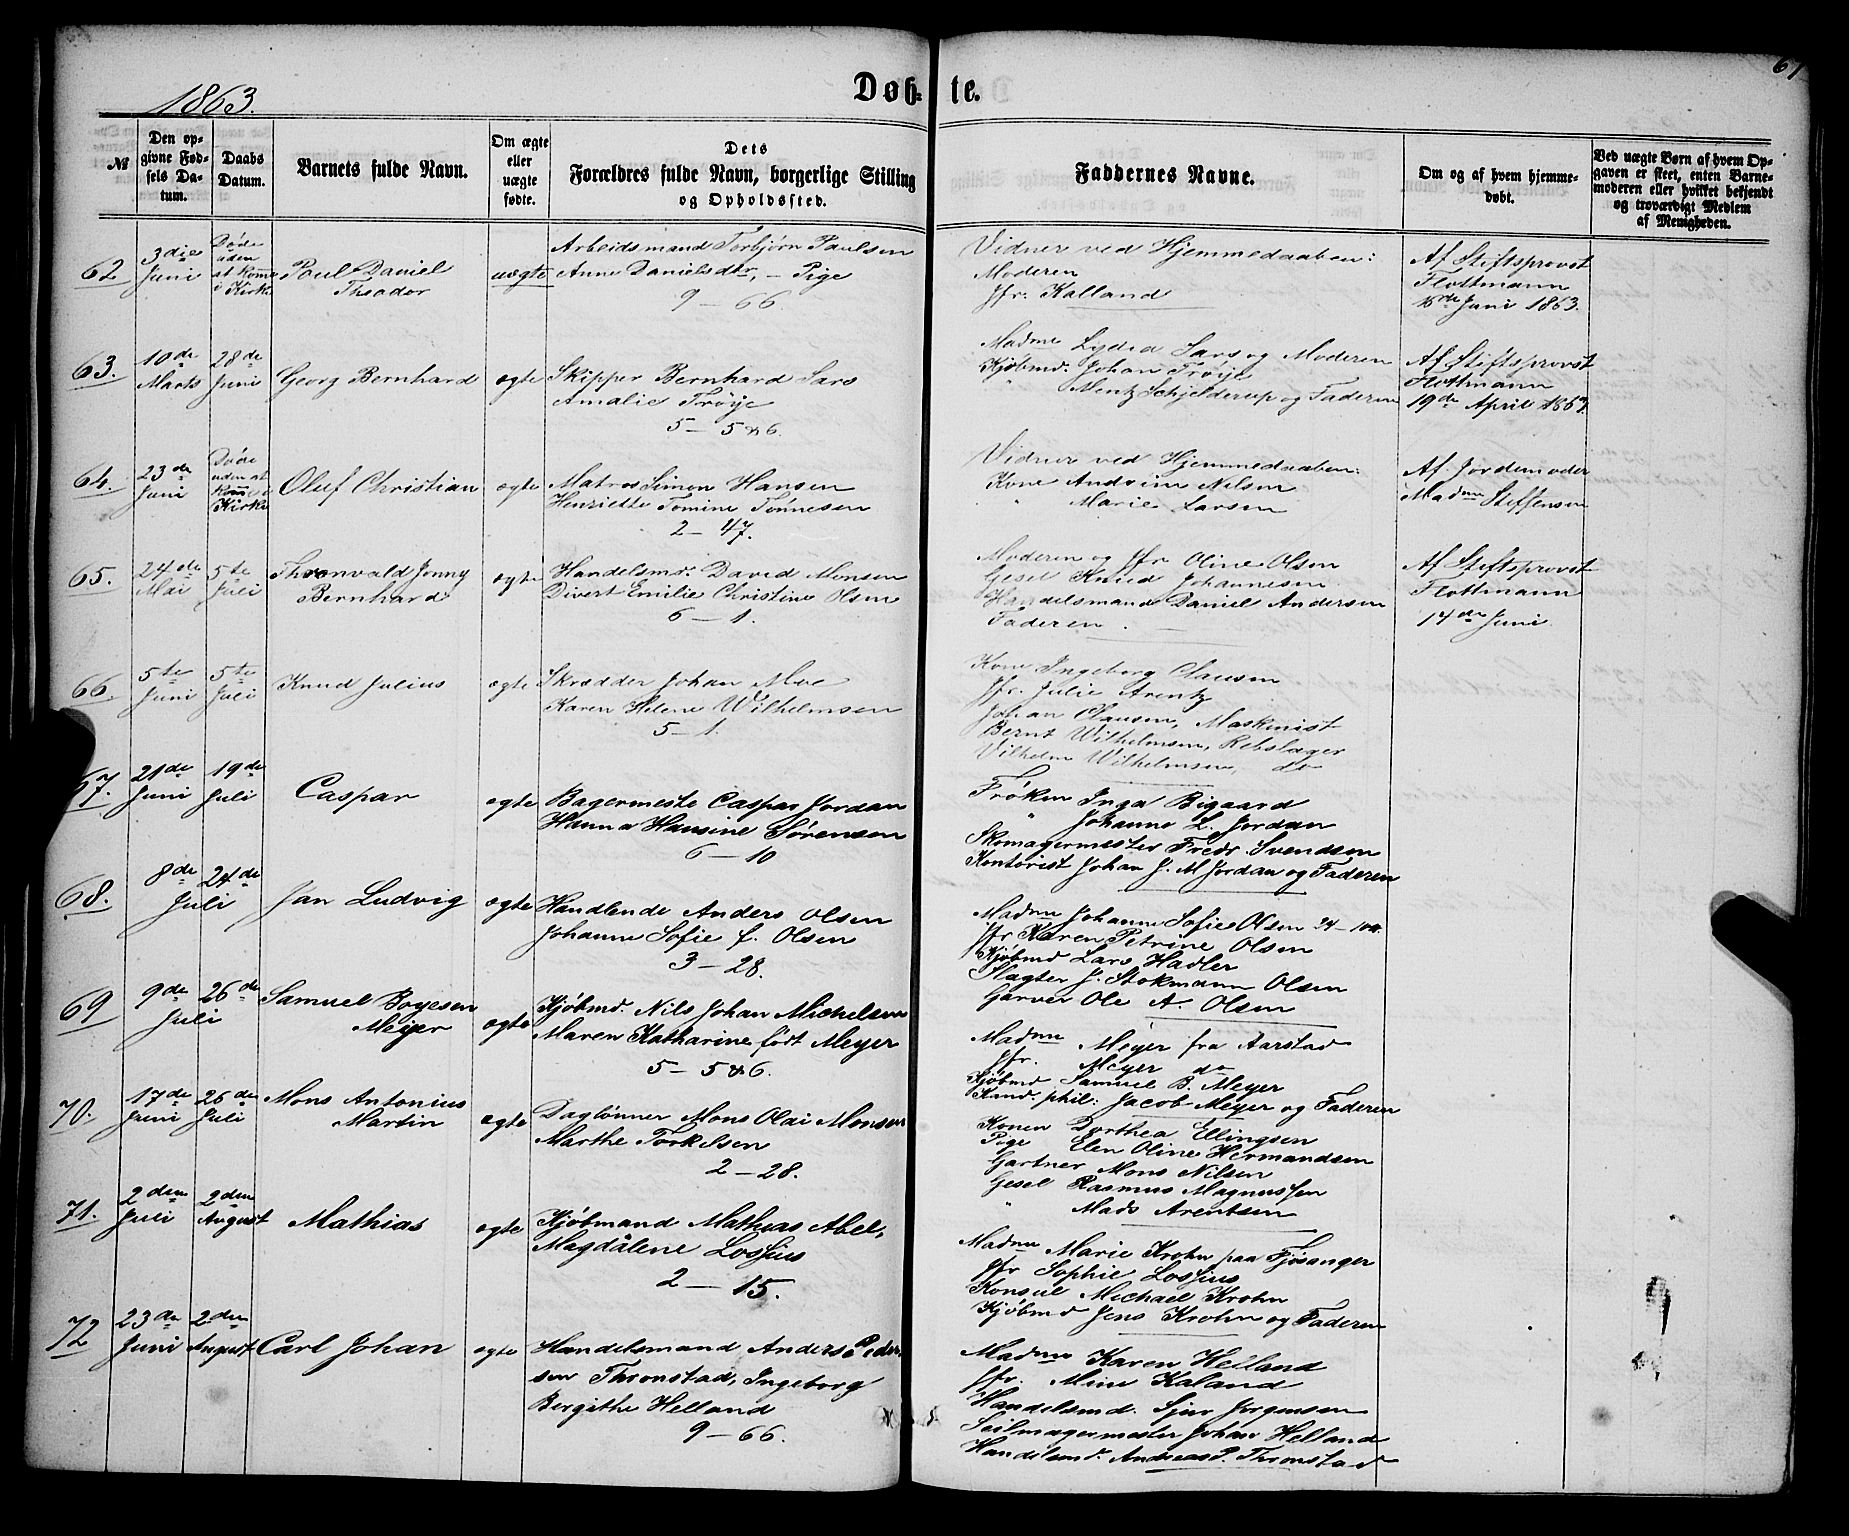 1863.
Døb- te.
67
№
Den op-
givne Fød-
sels Da-
tum.
Daabs
Datum.
Barnets fulde Navn.
Om ægte
eller
uægte
fødte.
Dets
Forældres fulde Navn, borgerlige Stilling
og Opholdssted.
Faddernes Navne.
Om og af hvem hjemme-
døbt.
Ved uægte Børn af hvem Op-
gaven er skeet, enten Barne-
moderen eller hvilket bekjendt
og troværdigt Medlem
af Menigheden.
62
3die
Juni
Døde
uden
at komme
i Kirke
Paul Daniel
Theodor
uægte
Arbeidsmand Torbjørn Paulsen
Anne Danielsdtr, - Pige
9 - 66.
Vidner ved Hjemmedaaben:
Moderen
Jfr. Kalland
Af Stiftsprovst
Flottmann
Juni 1863.
63.
10de
Marts
28de
Juni
Georg Bernhard
ægte
Skipper Bernhard Sars
Amalie Trøye
5 - 5 & 6.
Madme Lydia Sars og Moderen
Kjøbmd. Johan Trøye
" Mentz Schjelderup og Faderen
Af Stiftsprovst
Flottmann
19de April 1863.
64.
23de
Juni
Døde
uden at
komme i
Kirke
Oluf Christian
ægte
Matros Simon Hansen
Henriette Tomine Tønnesen
2 - 47.
Vidner ved Hjemmedaaben:
Kone Andrine Nilsen
" Marie Larsen
Af Jordemoder
Madme Steffensen
65.
24de
Mai
5te
Juli
Thronvald Jonny
Bernhard
ægte
Handelsmd. David Monsen
Divert Emilie Christine Olsen
6 - 1.
Moderen og Jfr Oline Olsen
Gesel Knud Johannesen
Handelsmand Daniel Andersen
Faderen.
Af Stiftsprovst
Flottmann
14de Juni
66.
5te
Juni
5te
Juli
Knud Julius
ægte
Skrædder Johan Moe
Karen Helene Wilhelmsen
5 - 1.
Kone Ingeborg Clausen
Jfr. Julie Arentz
Johan Clausen, Maskinist
Bernt Wilhelmsen, Rebslager
Vilhelm Wilhelmsen, do
67.
21de
Juni
19de
Juli
Caspar
ægte
Bagermeste Caspar Jordan
Hanna Hansine Sørensen
6 - 10
Frøken Inga Bigaard
" Johanne L. Jordan
Skomagermester Fredr Svendsen
Kontorist Johan J. M Jordan og Faderen
68.
8de 24de
Juli
Jan Ludvig
ægte
Handlende Anders Olsen
Johanne Sofie f. Olsen
3 - 28.
Madme Johanne Sofie Olsen 24 - 104.
Jfr Karen Petrine Olsen
Kjøbmd Lars Hadler
Slagter J. Stokmann Olsen
Garver Ole A. Olsen
69
9de 26de
Juli
Samuel Boyesen
Meyer
ægte
Kjøbmd. Nils Johan Michelsen
Maren Katharine født Meyer
5 - 5 & 6.
Madme Meyer fra Aarstad
Jfr. Meyer do
Kjøbmd Samuel B. Meyer
Kand. phil: Jacob Meyer og Faderen
70.
17de
Juni
26de
Juli
Mons Antonius
Martin
ægte
Daglønner Mons Olai Monsen
Marthe Torkelsen
2 - 28.
Konen Dorthea Ellingsen
Pige Elen Oline Hermandsen
Gartner Mons Nilsen
Gesel Rasmus Magnussen
" Mads Arentsen
71.
2den
Juli
2den
August
Mathias
ægte
Kjøbmand Mathias Abel,
Magdalene Lossius
2 - 15.
Madme Marie Krohn paa Fjøsanger
Jfr Sophie Lossius
Konsul Michael Krohn
Kjøbmd Jens Krohn og Faderen
72
23de
Juni
2den
August
Carl Johan
ægte
Handelsmand Anders Peder-
sen Thronstad, Ingeborg
Bergithe Helland
9 - 66.
Madme Karen Helland
Jfr. Mine Kaland
Handelsmd. Sjur Jørgensen
Seilmagermester Johan Helland
Handelsmd. Andreas P. Thronstad